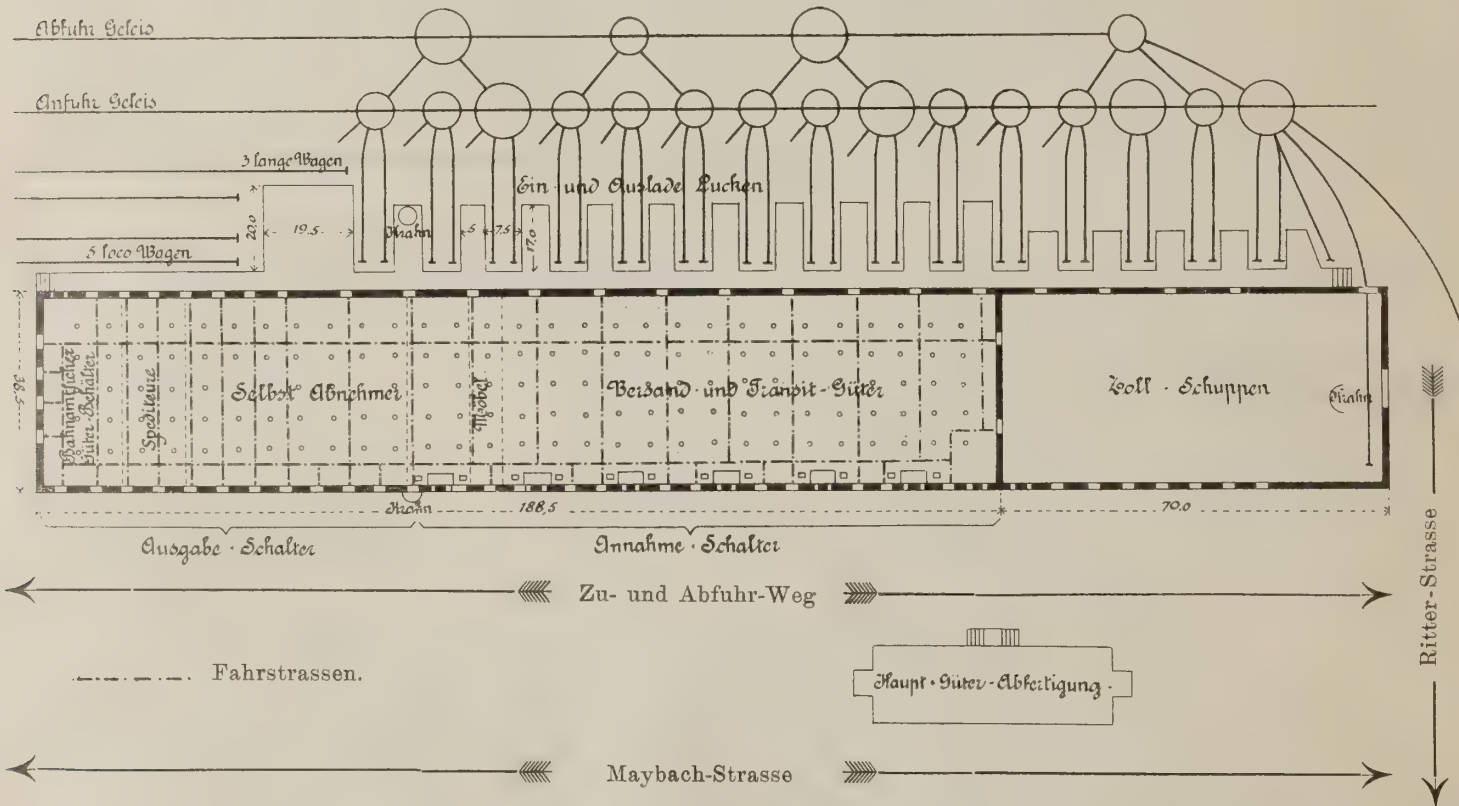 Abfuhr Geleis
Anfuhr Geleis
3 lange Wagen
Ein- und Auslade Lucken
20,0
19,5
Krahn
5
7,5
17,0
5 loco Wagen
38,5
Bahnamtlicher
Güter-Behälter
Spediteure
Selbst Abnehmer
Möbel
Versand- und Transit-Güter
Zoll-Schuppen
Krahn
Krahn
188,5
70,0
Ausgabe-Schalter
Annahme-Schalter
Zu- und Abfuhr-Weg
Ritter-Strasse
Fahrstrassen.
Haupt-Güter-Abfertigung.
Maybach-Strasse